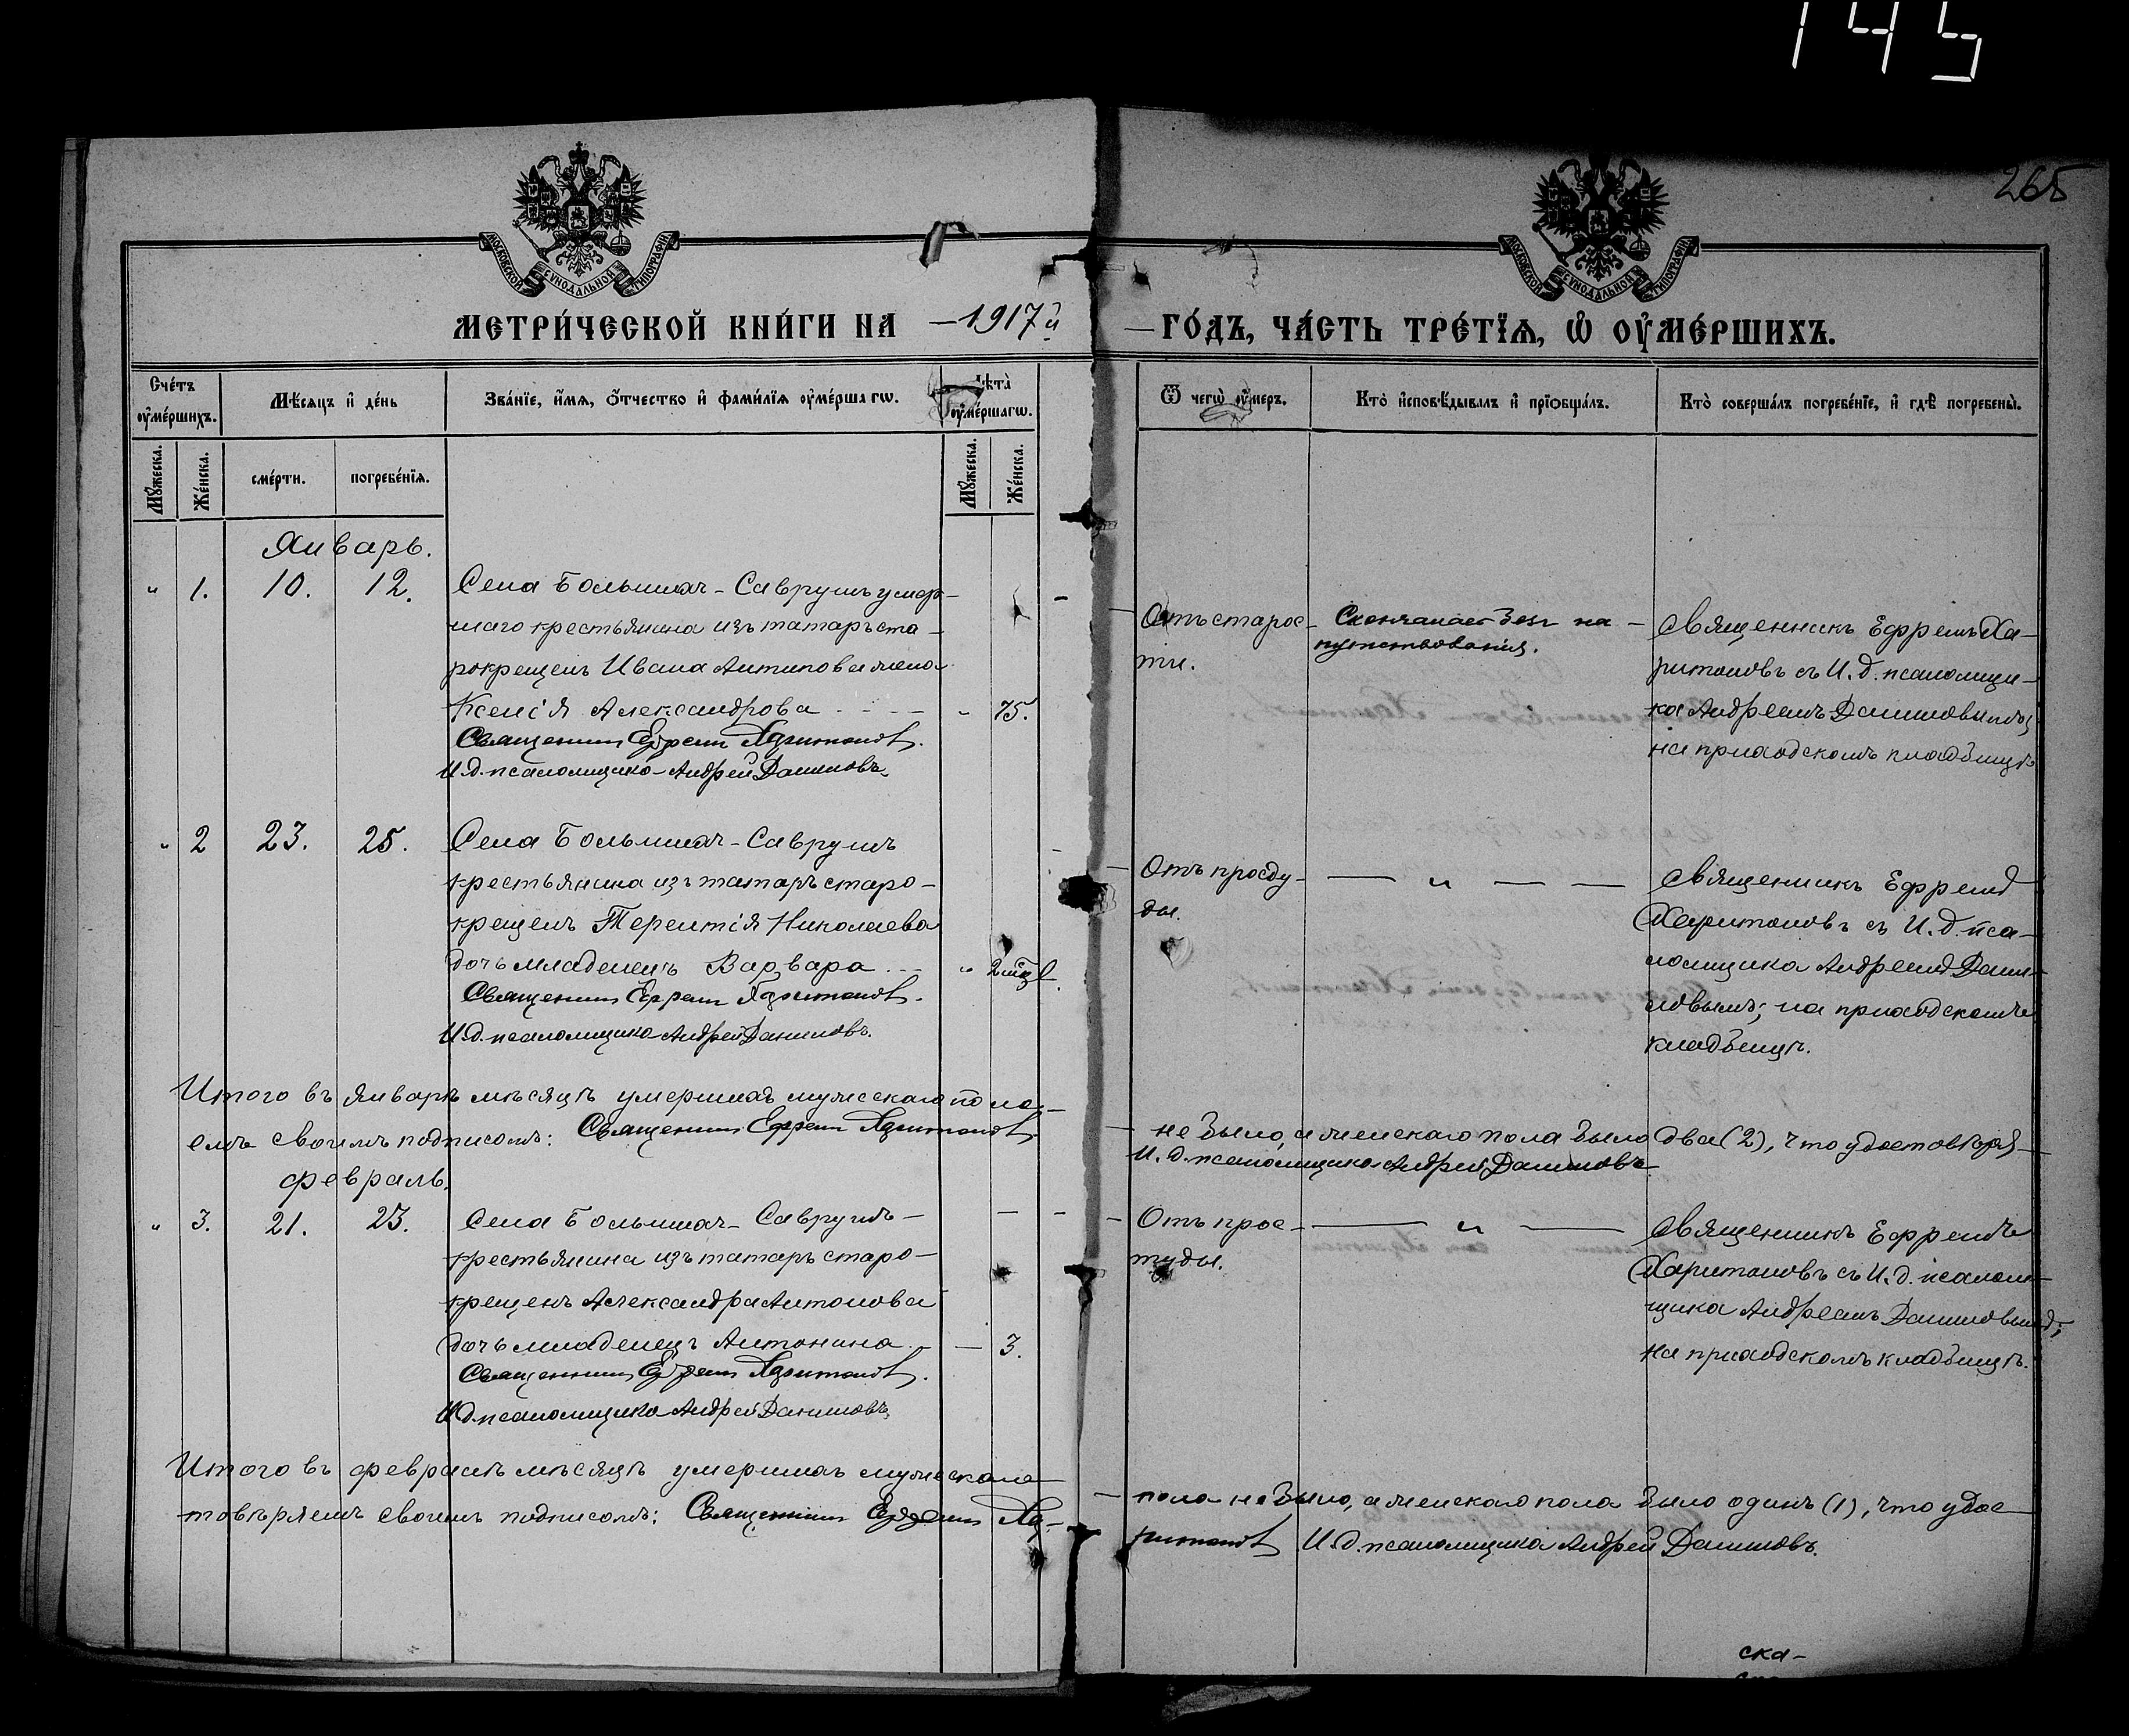 145
265
МОСКОВСКОЙ СѴНОДАЛЬНОЙ ТИПОГРАФІИ
МОСКОВСКОЙ СѴНОДАЛЬНОЙ ТИПОГРАФІИ
МЕТРИ́ЧЕСКОЙ КНИ́ГИ НА —1917й
—ГО́ДЪ, ЧА́СТЬ ТРЕ́ТЇѦ, Ѽ ОУ҆МЕ́РШИХЪ.
Сче́тъ оу҆ме́ршихъ.
Мѣ́сѧцъ и҆ де́нь
Зва́нїе, и҆́мѧ, ѻ҆́тчество и҆ фами́лїѧ оу҆ме́ршагѡ.
Лѣта̀ оу҆ме́ршагѡ.
Ѿ чегѡ̀ оу҆́меръ.
Кто̀ и҆сповѣ́дывалъ и҆ прїѻбща́лъ.
Кто̀ соверша́лъ погребе́нїе, и҆ гдѣ̀ погребены̀.
Мꙋ́жеска.
Же́нска.
сме́рти.
погребе́нїѧ.
Мꙋ́жеска.
Же́нска.
Январь.
" 1. 10. 12.
Села Большихъ-Саврушъ умер-
шаго крестьянина изъ татаръ ста-
рокрещенъ Ивана Антипова жена
Ксенія Александрова - - - - " 75.
Священникъ Ефремъ Харитоновъ.
И.д. псаломщика-Андрей Даниловъ.
Отъ старос-
ти.
Скончалась безъ на-
путствованія.
Священникъ Ефремъ Ха-
ритоновъ съ И.д. псаломщи-
ка Андреемъ Даниловымъ;
на приходскомъ кладбищѣ.
" 2 23. 25.
Села Большихъ-Саврушъ
крестьянина изъ татаръ старо-
крещенъ Терентія Николаева
дочь младенецъ Варвара - - " 2 мѣс.
Священникъ Ефремъ Харитоновъ.
И.д. псаломщика-Андрей Даниловъ.
Отъ просту-
ды.
— " — —
Священникъ Ефремъ
Харитоновъ съ И.д. пса-
ломщика Андреемъ Дани-
ловымъ; на приходскомъ
кладбищѣ.
Итого въ январѣ мѣсяцѣ умершихъ мужескаго пола —
— не было, а женскаго пола было два (2), что удостовѣря-
емъ своимъ подписомъ: Священникъ Ефремъ Харитоновъ
И.д. псаломщика-Андрей Даниловъ.
февраль.
" 3. 21. 23.
Села Большихъ-Саврушъ —
крестьянина изъ татаръ старо-
крещенъ Александра Антонова
дочь младенецъ Антонина - — 3.
Священникъ Ефремъ Харитоновъ.
И.д. псаломщика Андрей Даниловъ.
Отъ прос-
туды.
— " —
Священникъ Ефремъ
Харитоновъ съ И.д. псалом-
щика Андреемъ Даниловымъ;
на приходскомъ кладбищѣ.
Итого въ февралѣ мѣсяцѣ умершихъ мужескаго
— пола не было, а женскаго пола было одинъ (1), что удос-
товѣряемъ своимъ подписомъ: Священникъ Ефремъ Ха-
ритоновъ И.д. псаломщика Андрей Даниловъ.
ска-